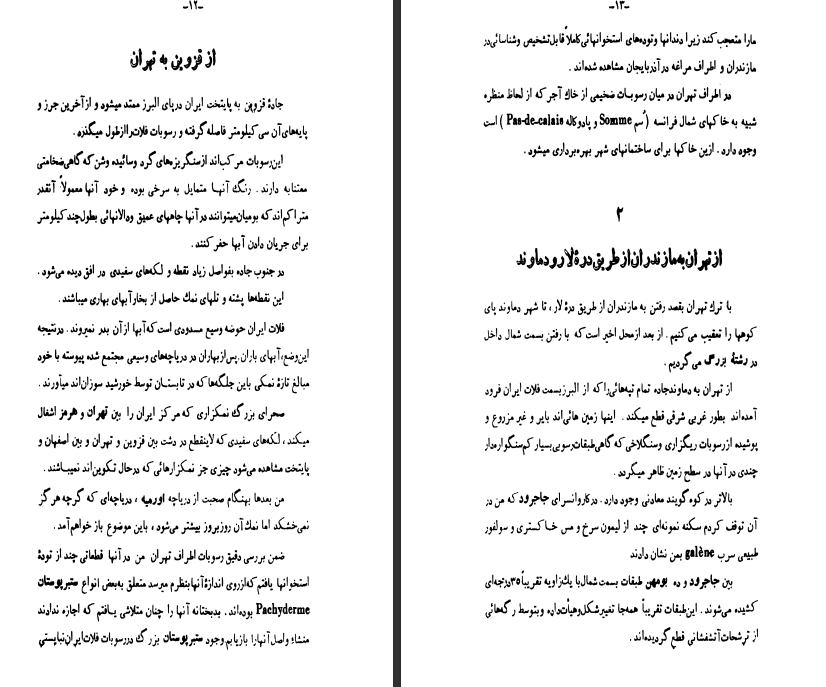 -۱۲-
از قزوین به تهران
جادهٔ قزوین به پایتخت ایران درپای البرز ممتد میشود و ازآخرین جرز و
پایه‌های آن سی کیلومتر فاصله گرفته و رسوبات فلات را ازطول میگذرد .
این رسوبات مرکب‌اند ازسنگریزه‌های گرد وسائیده وشن که گاهی ضخامتی
معتنابه دارند . رنگ آنها متمایل به سرخی بوده و خود آنها معمولاً آنقدر
متراکم‌اند که بومیان میتوانند در آنها چاههای عمیق ودالانهائی بطول چند کیلومتر
برای جریان دادن آبها حفر کنند .
در جنوب جاده بفواصل زیاد نقطه و لکه‌های سفیدی در افق دیده می‌شود .
این نقطه‌ها پشته و تلهای نمک حاصل از بخار آبهای بهاری میباشند .
فلات ایران حوضه وسیع مسدودی است که آبها از آن بدر نمیروند . درنتیجه
این‌وضع، آبهای باران پس‌ازبهاران در دریاچه‌های وسیعی مجتمع شده پیوسته با خود
مبالغ تازهٔ نمکی باین جلگه‌ها که در تابستان توسط خورشید سوزان‌اند میآورند .
صحرای بزرگ نمکزاری که مرکز ایران را بین تهران و هرمز اشغال
میکند ، لکه‌های سفیدی که لاینقطع در دشت بین قزوین و تهران و بین اصفهان و
پایتخت مشاهده می‌شود چیزی جز نمکزارهائی که درحال تکوین‌اند نمیباشند .
من بعدها بهنگام صحبت از دریاچه اورمیه ، دریاچه‌ای که گرچه هرگز
نمی‌خشکد اما نمک آن روزبروز بیشتر می‌شود ، باین موضوع باز خواهم آمد .
ضمن بررسی دقیق رسوبات اطراف تهران من در آنها قطعاتی چند از تودهٔ
استخوانها یافتم که ازروی اندازهٔ آنها بنظرم میرسد متعلق به بعض انواع ستبرپوستان
Pachyderme بوده‌اند . بدبختانه آنها را چنان متلاشی یافتم که اجازه ندادند
منشاء واصل آنها را بازیابم وجود ستبرپوستان بزرگ در رسوبات فلات ایران نبایستی
-۱۳-
مارا متعجب کند زیرا دندانها وتوده‌های استخوانهائی کاملاً قابل تشخیص وشناسائی در
مازندران و اطراف مراغه در آذربایجان مشاهده شده‌اند .
در اطراف تهران در میان رسوبات ضخیمی از خاک آجر که از لحاظ منظره
شبیه به خاکهای شمال فرانسه (سُم Somme و پادوکاله Pas-de-calais ) است
وجود دارد . ازین خاکها برای ساختمانهای شهر بهره‌برداری میشود .
۲
از تهران به مازندران از طریق درهٔ لار و دماوند
با ترک تهران بقصد رفتن به مازندران از طریق درهٔ لار ، تا شهر دماوند پای
کوهها را تعقیب می‌کنیم . از بعد ازمحل اخیر است که با رفتن بسمت شمال داخل
در رشتهٔ بزرگ می گردیم .
از تهران به دماوند جاده تمام تپه‌هائی را که از البرز بسمت فلات ایران فرود
آمده‌اند بطور غربی شرقی قطع میکند . اینها زمین هائی‌اند بایر و غیر مزروع و
پوشیده از رسوبات ریگزاری وسنگلاخی که گاهی طبقات رسوبی بسیار کم سنگواره‌دار
چندی در آنها در سطح زمین ظاهر میگردد .
بالاتر در کوه گویند معادنی وجود دارد . در کاروانسرای جاجرود که من در
آن توقف کردم سکنه نمونه‌ای چند از لیمون سرخ و مس خاکستری و سولفور
طبیعی سرب galène بمن نشان دادند
بین جاجرود و ده بومهن طبقات بسمت شمال با یک زاویه تقریباً ۳۵ درجه‌ای
کشیده می‌شوند . این طبقات تقریباً همه‌جا تغییر شکل وهیأت داده وبتوسط رگه‌هائی
از ترشحات آتشفشانی قطع گردیده‌اند .